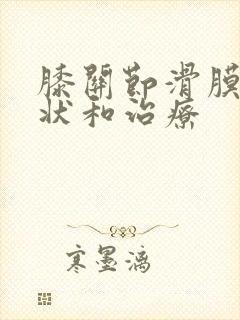 膝關節滑膜
狀和治療
寒墨漓